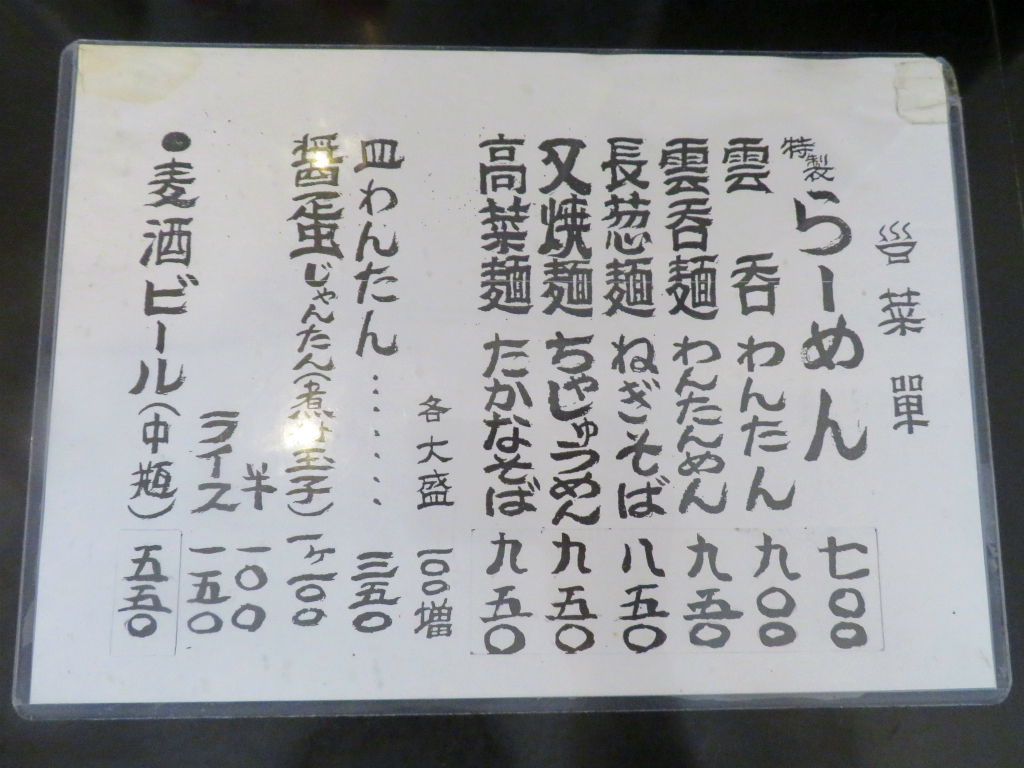 菜單
特製らーめん 七〇〇
雲呑 わんたん 九〇〇
雲呑麺 わんたんめん 九五〇
長葱麺 ねぎそば 八五〇
叉焼麺 ちゃしゅうめん 九五〇
高菜麺 たかなそば 九五〇
各大盛 一〇〇増
皿わんたん…… 三五〇
醤蛋じゃんたん(煮付玉子) 一ヶ一〇〇
半 一〇〇
ライス 一五〇
●麦酒ビール(中瓶) 五五〇